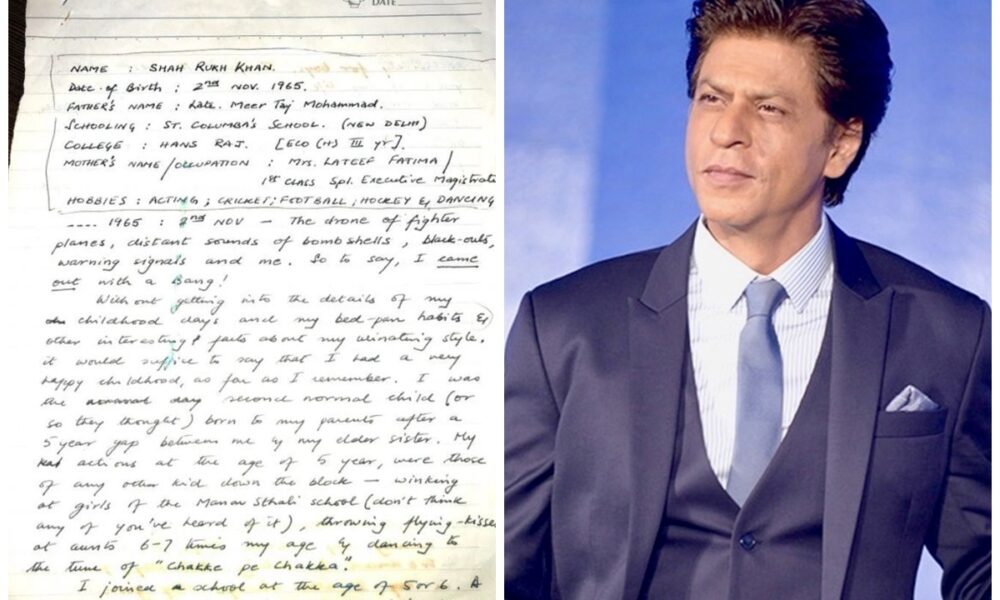 DATE
NAME : SHAH RUKH KHAN.
Date of Birth : 2nd NOV. 1965.
FATHER'S NAME : Late. Meer Taj Mohammad.
SCHOOLING : ST. COLUMBA'S SCHOOL. (NEW DELHI)
COLLEGE : HANS RAJ. [ECO (H) III yr].
MOTHER'S NAME/OCCUPATION : MRS. LATEEF FATIMA/
1st CLASS Spl. Executive Magistrate
HOBBIES : ACTING ; CRICKET ; FOOTBALL ; HOCKEY & DANCING
---- 1965 : 2nd NOV — The drone of fighter
planes, distant sounds of bombshells, black-outs,
warning signals and me. So to say, I came
out with a Bang!
Without getting into the details of my
childhood days and my bed-pan habits &
other interesting facts about my urinating style,
it would suffice to say that I had a very
happy childhood, as far as I remember. I was
the day second normal child (or
so they thought) born to my parents after a
5 year gap between me & my elder sister. My
actions at the age of 5 year, were those
of any other kid down the block — winking
at girls of the Manav Sthali school (don't think
any of you've heard of it), throwing flying-kisses
at aunts 6-7 times my age & dancing to
the tune of "Chakke pe Chakka".
I joined a school at the age of 5 or 6. A